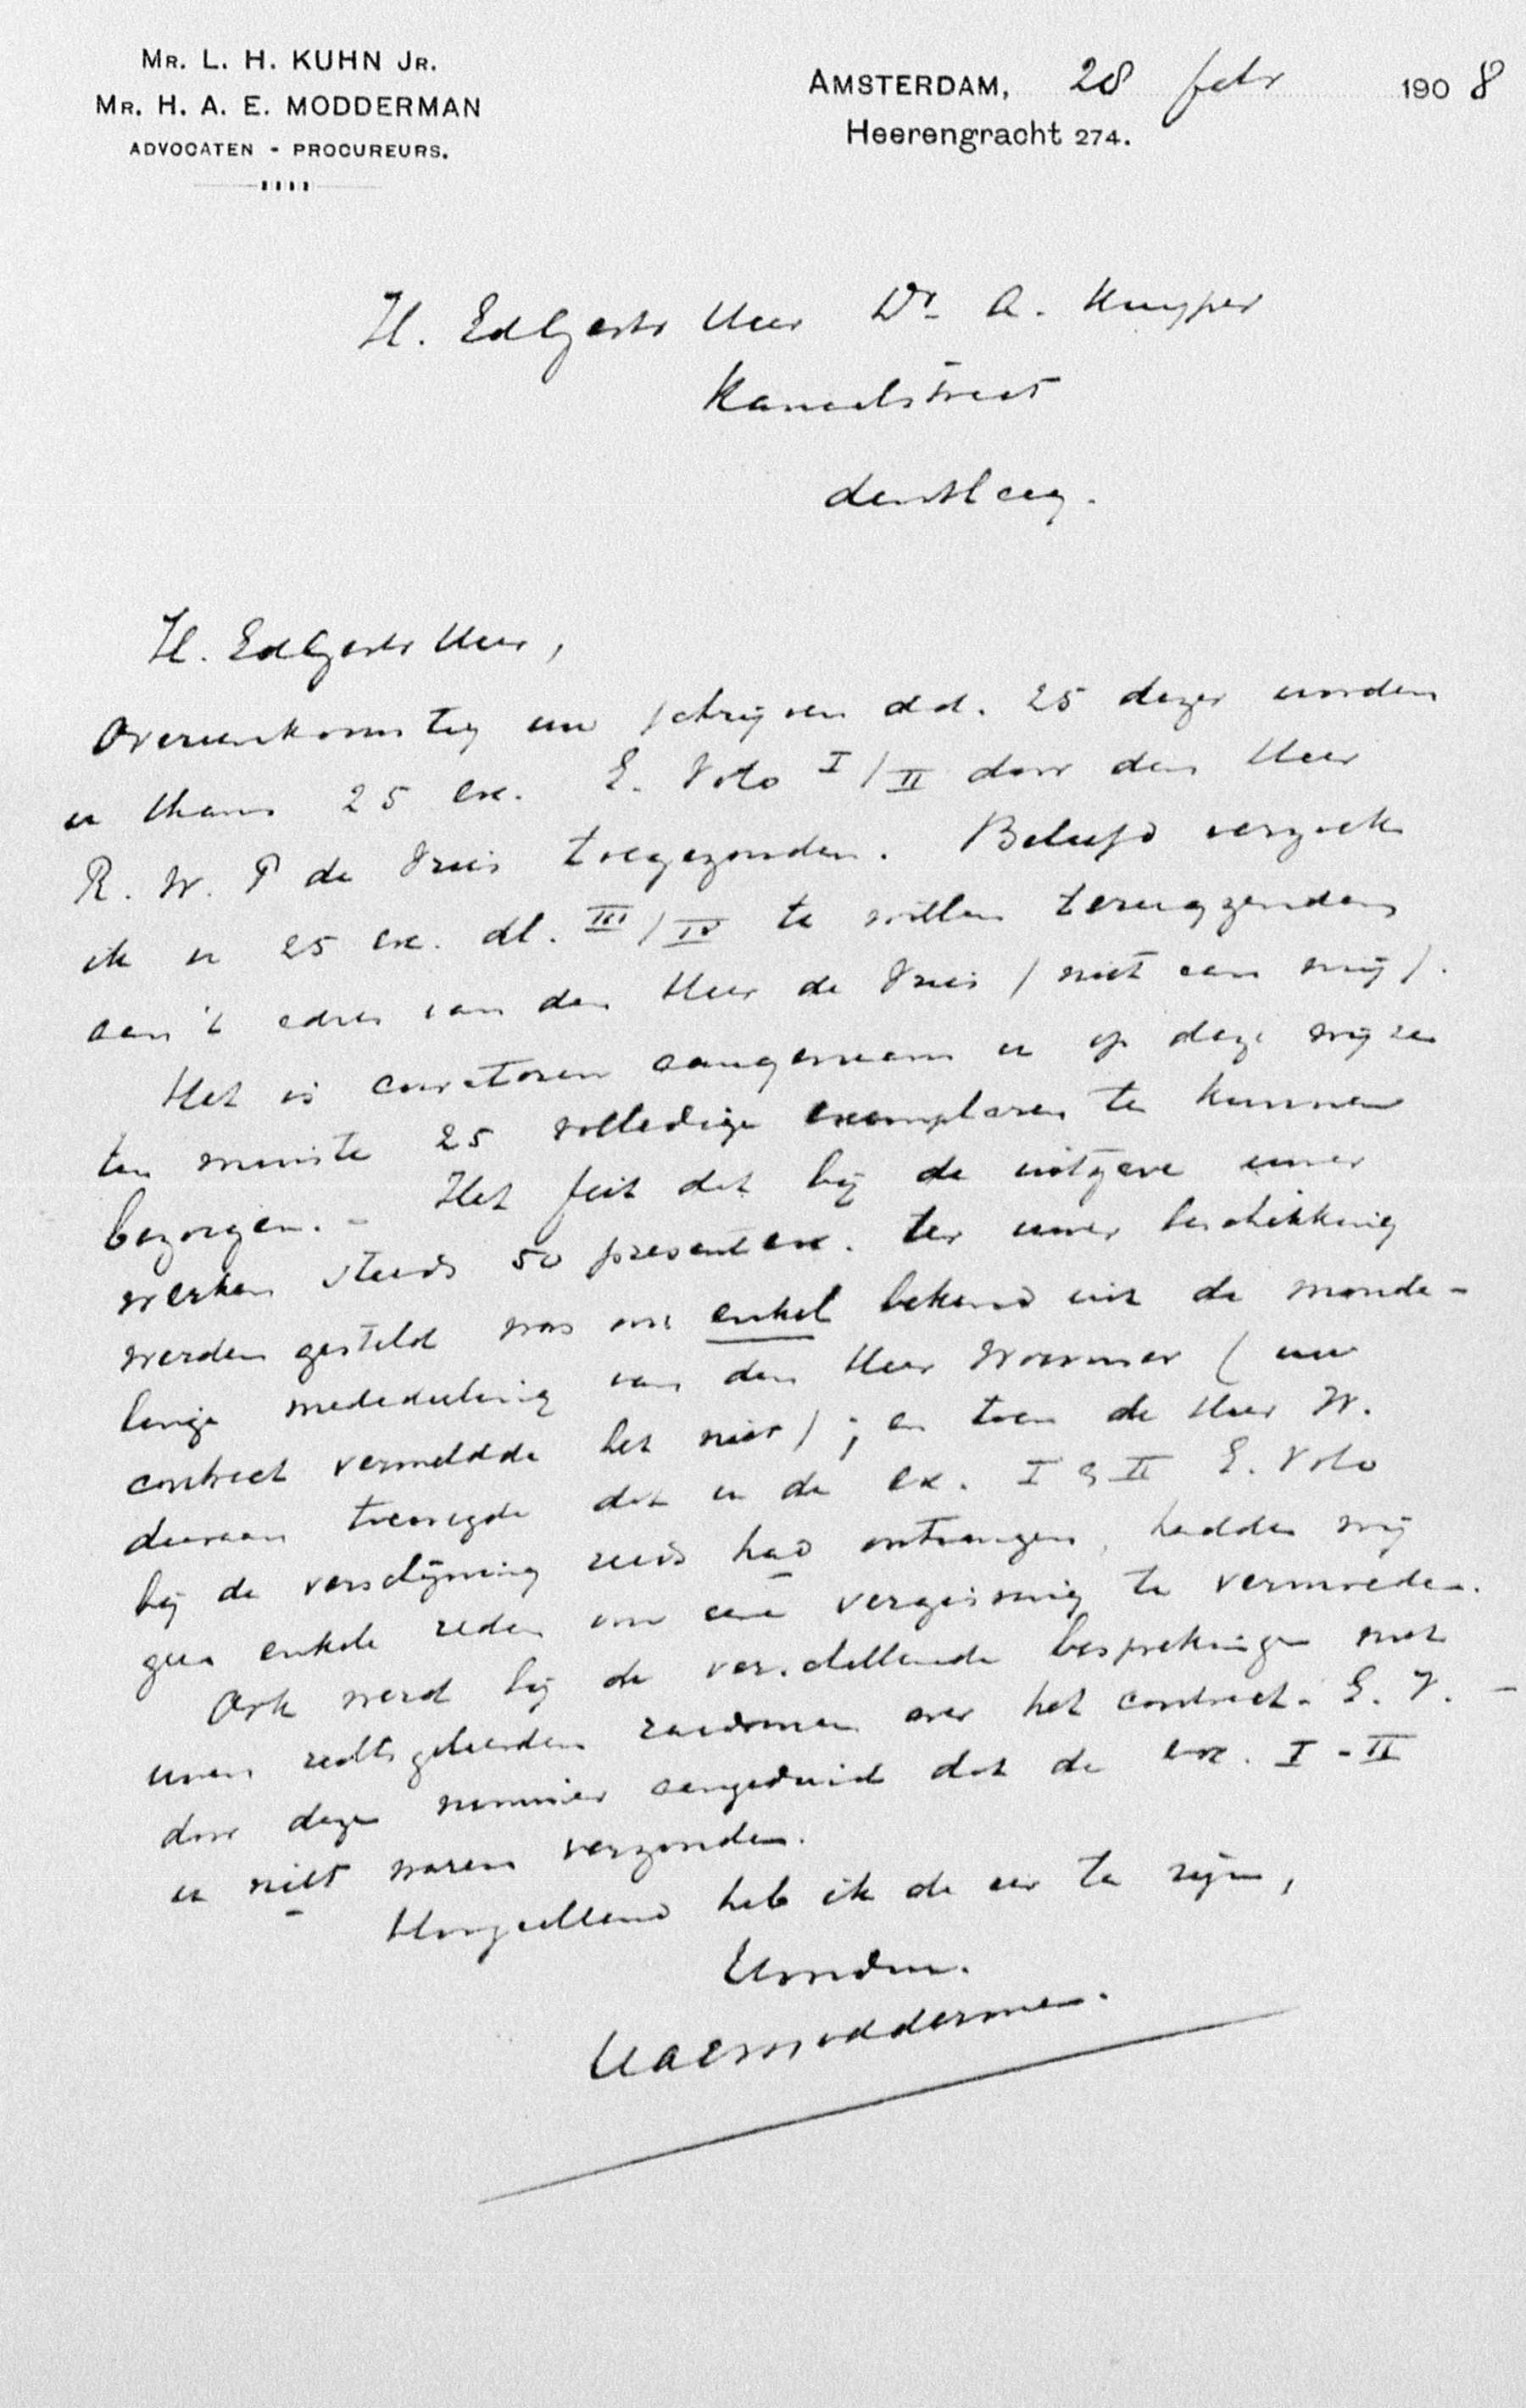 MR. L. H. KUHN JR.
MR. H. A. E. MODDERMAN
ADVOCATEN - PROCUREURS.
AMSTERDAM, 28 febr 1908
Heerengracht 274.
H. EdlGestr Heer Dr. A. Kuyper
Kanaalstraat
den Haag.
H. EdlGestr Heer,
Overeenkomstig uw schrijven dd. 25 dezer worden
u thans 25 ex. E. Voto I/II door den Heer
R. W. P de Vries toegezonden. Beleefd verzoek
ik u 25 ex. dl. III/IV te willen terugzenden
aan 't adres van den Heer de Vries (niet aan mij).
Het is curatoren aangenaam u op deze wijze
ten minste 25 volledige exemplaren te kunnen
bezorgen. - Het feit dat bij de uitgave uwer
werken steeds 50 present ex. ter uwer beschikking
werden gesteld was ons enkel bekend uit de monde-
linge mededeeling van den Heer Wormser (uw
contract vermeldde het niet); en toen de Heer W.
daaraan toevoegde dat u de ex. I & II E. Voto
bij de verschijning reeds had ontvangen, hadden wij
geen enkele reden om eene vergissing te vermoeden.
Ook werd bij de verschillende besprekingen met
uwen rechtsgeleerden raadsman over het contract- E. V. -
door dezen nimmer aangeduid dat de ex. I - II
u niet waren verzonden.
Hoogachtend heb ik de eer te zijn,
Uwdw.
HAEModderman.